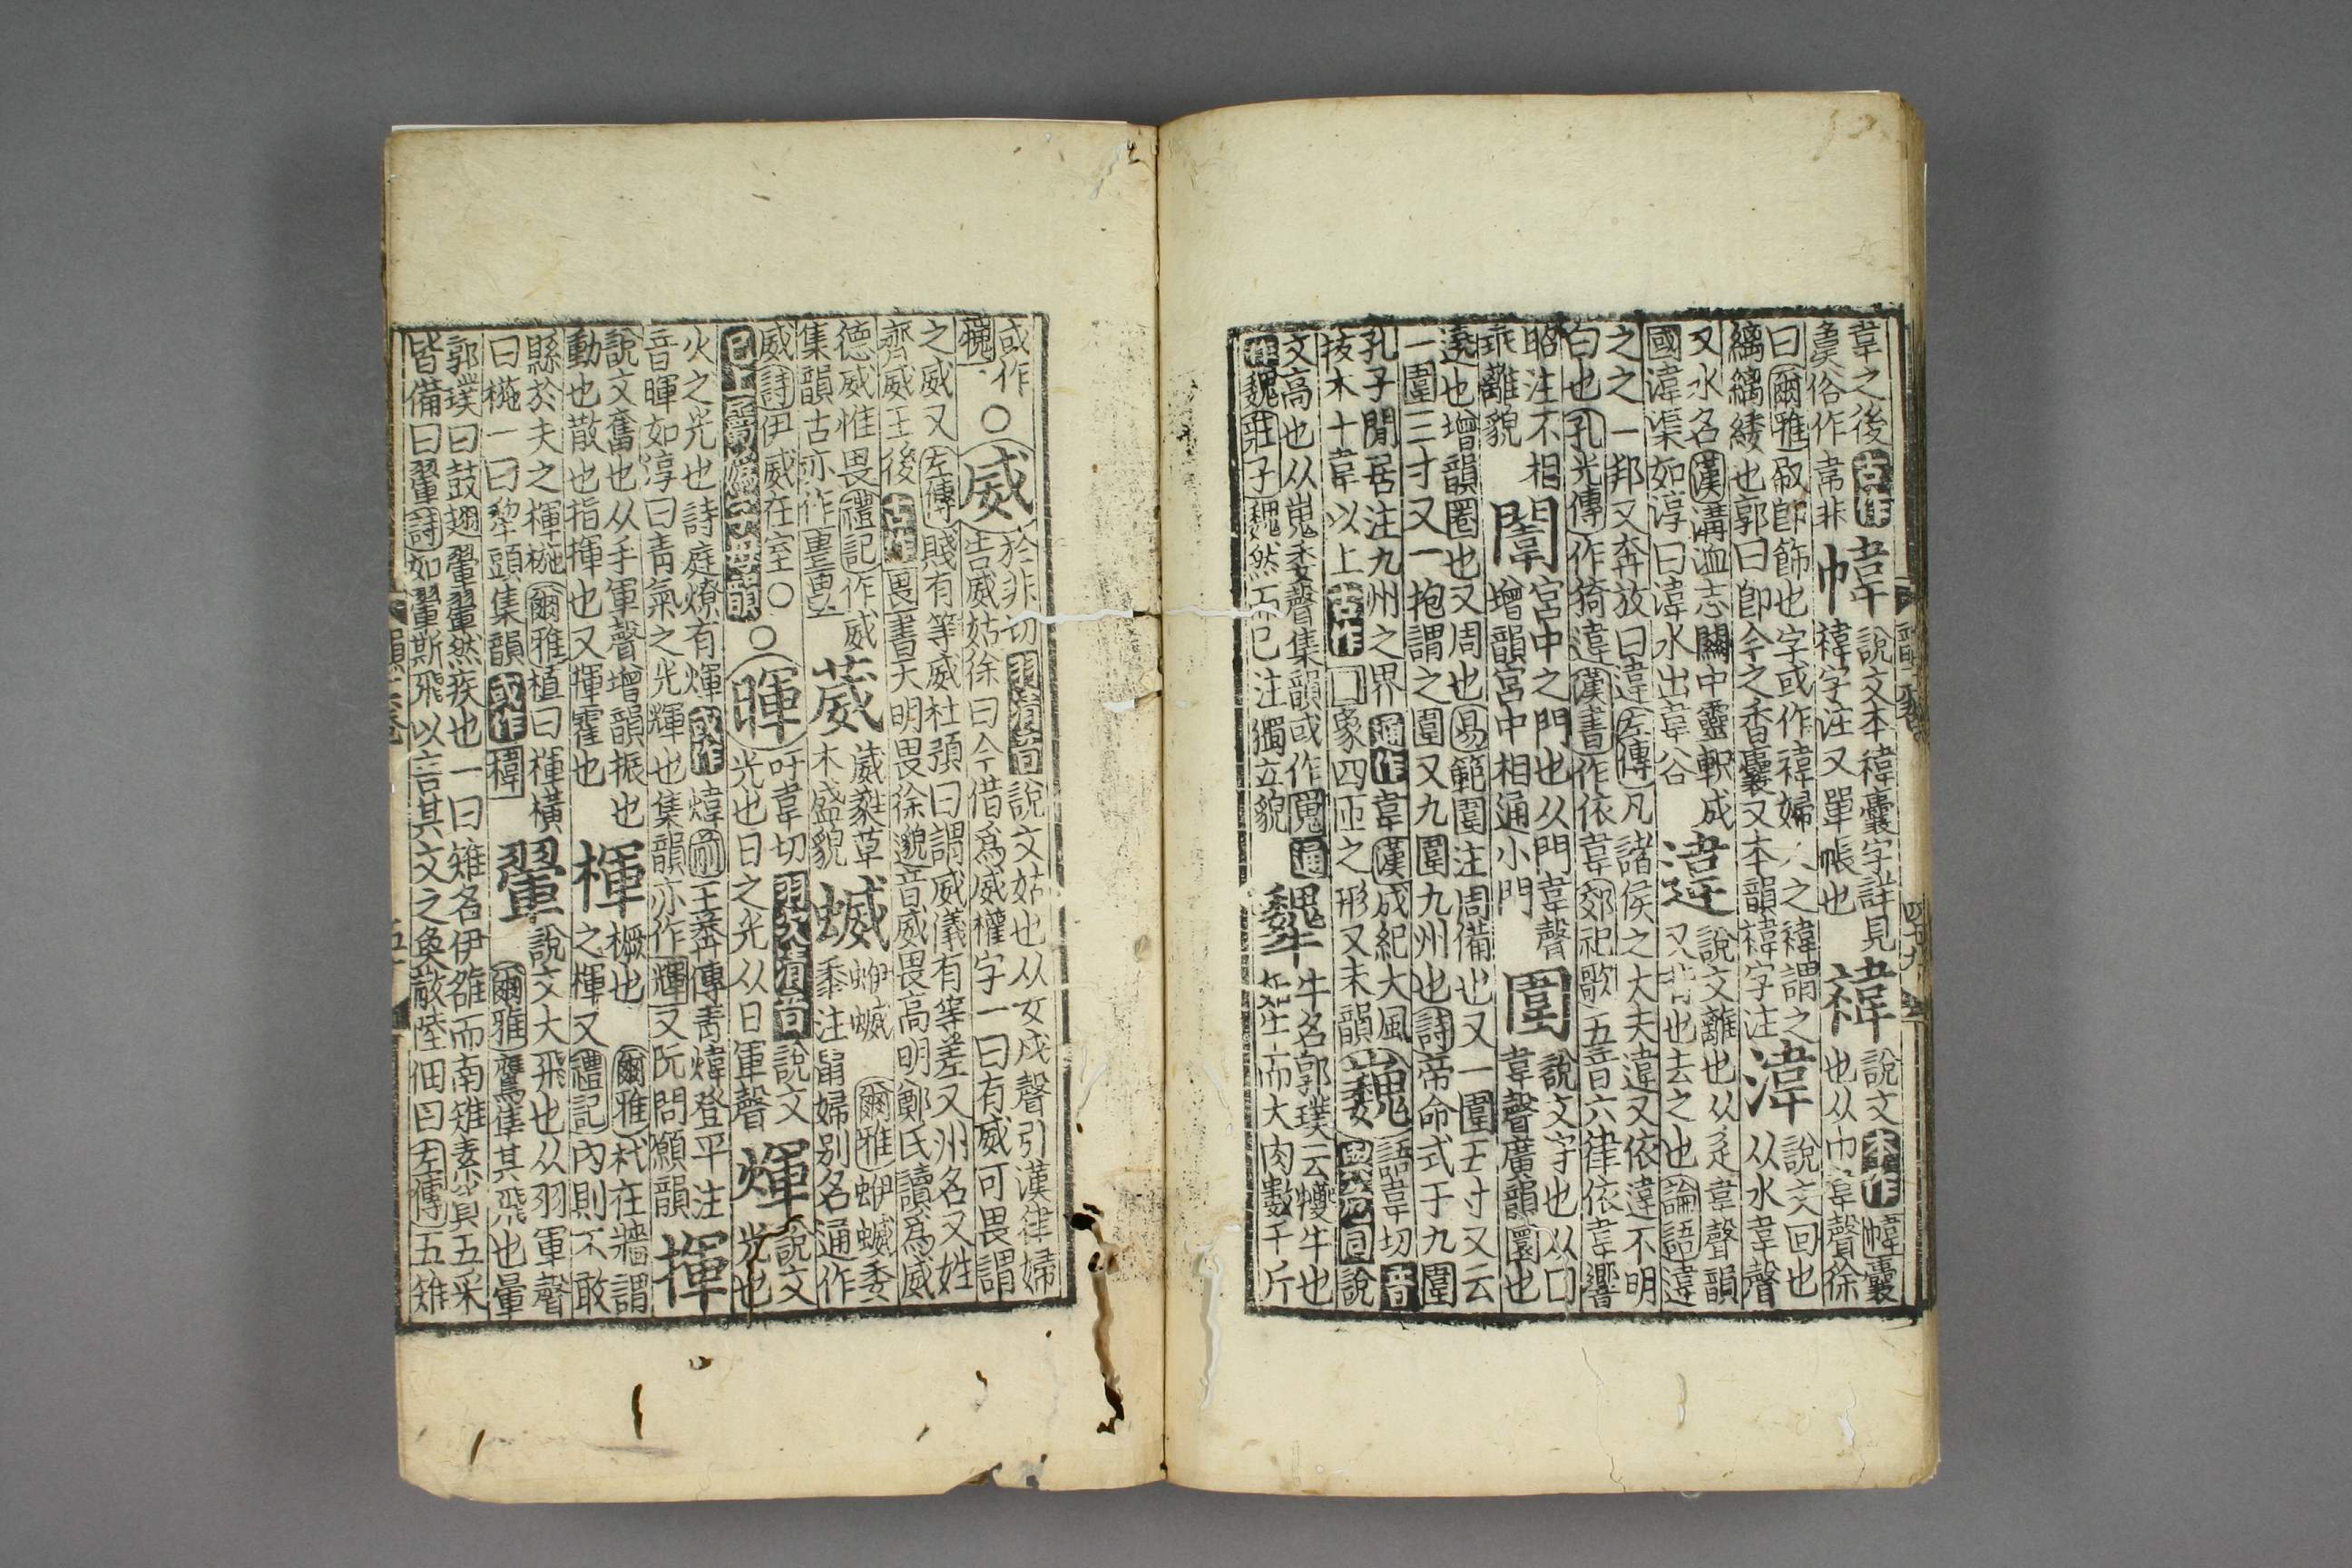 韋之後古作俗作韋非幃說文本褘囊字詳見褘字注又單帳也褘說文本作幃囊也从巾韋聲徐
曰爾雅即飾也字或作褘婦人之褘謂之縭縭緌也郭曰即今之香囊又本韻褘字注湋說文回也从水韋聲
又水名漢溝洫志關中靈軹成國湋渠如淳曰湋水出韋谷違說文離也从辵韋聲韻又背也去之也論語違
之之一邦又奔放曰違左傳凡諸侯之大夫違又依違不明白也孔光傳作猗違漢書作依韋郊祀歌五音六律依韋響
昭注不相乖離貌闈宮中之門也从門韋聲增韻宮中相通小門圍說文守也从囗韋聲廣韻圜也
遶也增韻圈也又周也易範圍注周備也又一圍五寸又云一圍三寸又一抱謂之圍又九圍九州也詩帝命式于九圍
孔子閒居注九州之界通作韋漢成紀大風拔木十韋以上古作囗象四帀之形又未韻巍語韋切音與危同說
文高也从嵬委聲集韻或作嵬通作魏莊子魏然而已注獨立貌犩牛名郭璞云犪牛也如牛而大肉數千斤
韻 四十九
或作○威於非切羽淸音說文姑也从女戌聲引漢律婦告威姑徐曰今借爲威權字一曰有威可畏謂
之威又左傳賤有等威杜預曰謂威儀有等差又州名又姓齊威王後古作畏書天明畏徐邈音威畏高明鄭氏讀爲威
德威惟畏禮記作威集韻古亦作葳葳蕤草木盛貌蝛蛜蝛爾雅蛜蝛委黍注鼠婦别名通作
威詩伊威在室○已上屬韻○暉吁韋切羽次淸音說文光也日之光从日軍聲煇說文光也
火之光也詩庭燎有煇或作煒前王莽傳青煒登平注音暉如淳曰青氣之光輝也集韻亦作輝又阮問願韻揮
說文奮也从手軍聲增韻振也動也散也指揮也又揮霍也楎橛也爾雅杙在牆謂之楎又禮記內則不敢
縣於夫之楎椸爾雅植曰楎橫曰椸一曰犂頭集韻或作翬說文大飛也从羽軍聲爾雅鷹隼其飛也翬
郭璞曰鼓翅翬翬然疾也一曰雉名伊雒而南雉素質五采皆備曰翬詩如翬斯飛以言其文之奐敞陸佃曰左傳五雉